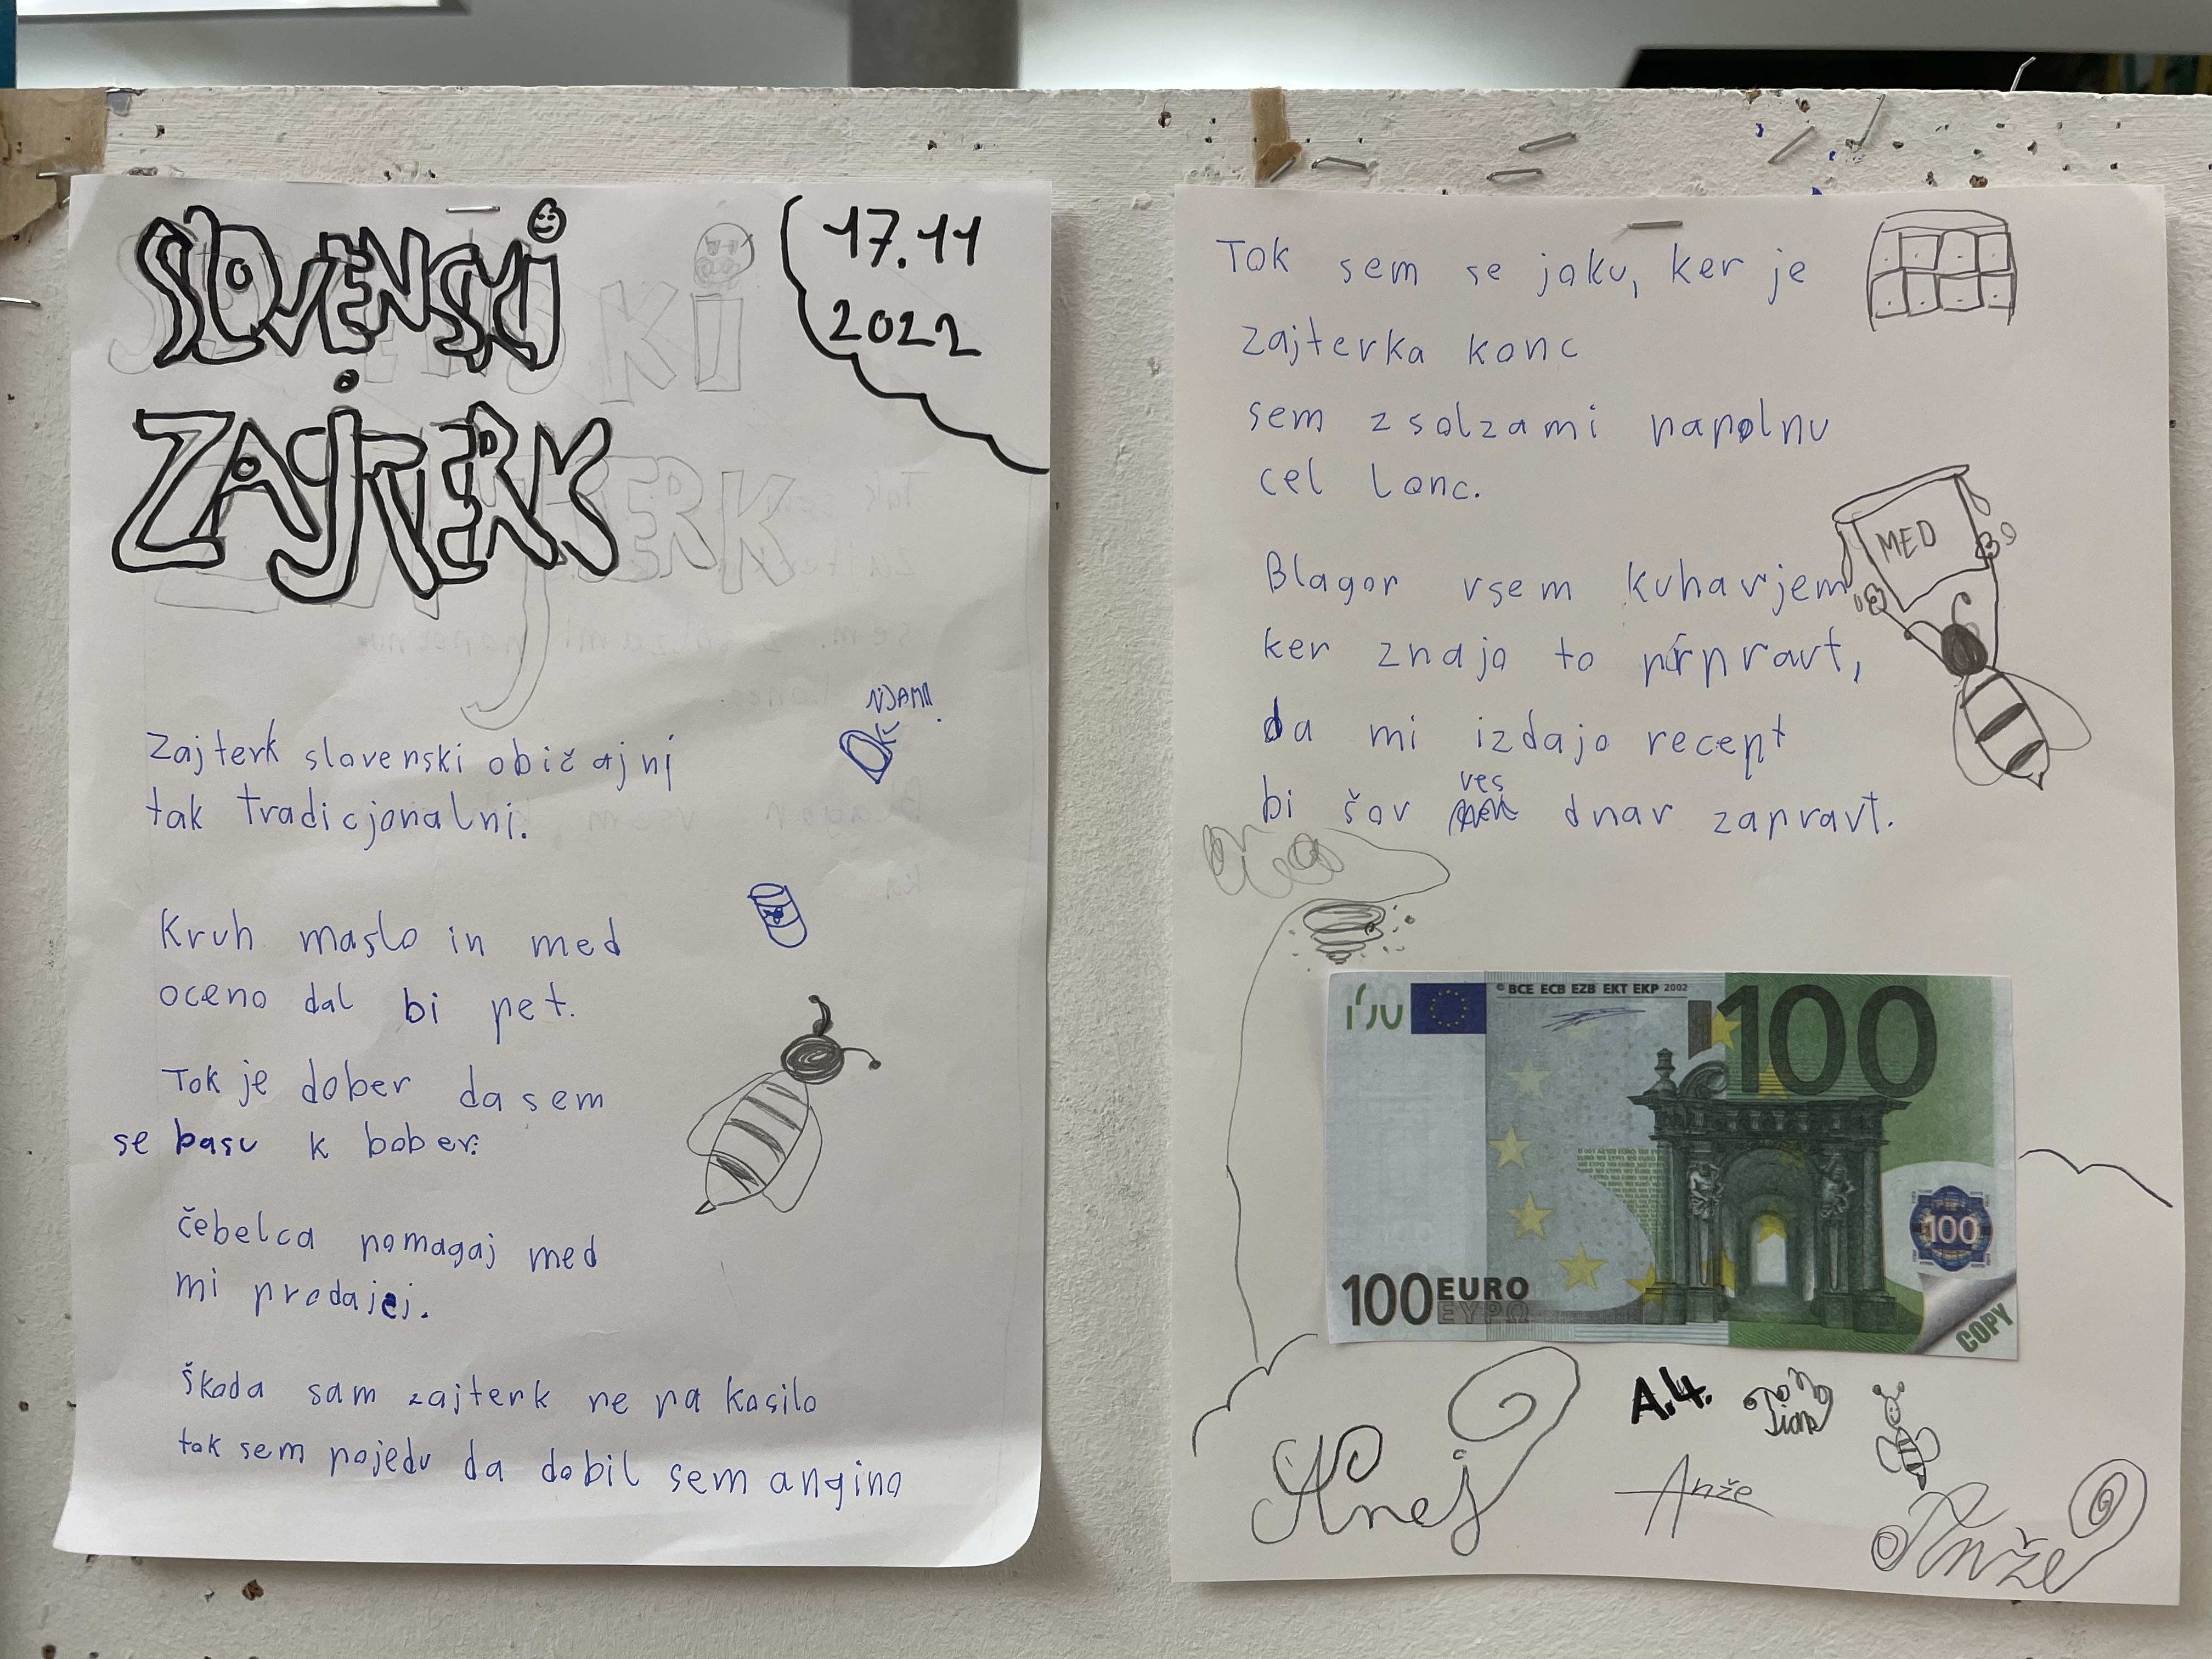 SLOVENSKI
ZAJTERK
17.11
2022
NJAM!!!
Zajterk slovenski običajnj
tak tradicjonalni.
Kruh maslo in med
oceno dal bi pet.
Tok je dober da sem
se basu k bober.
čebelca pomagaj med
mi prodajej.
škoda sam zajterk ne na kosilo
tok sem pojedu da dobil sem angino
Tok sem se joku, ker je
zajterka konc
sem z solzami napolnu
cel lonc.
MED
Blagor vsem kuharjem
ker znajo to prpravt,
da mi izdajo recept
bi šov ves dnar zapravt.
100
© BCE ECB EZB EKT EKP 2002
100
100
100 EURO
ΕΥΡΩ
COPY
A.4.
Anej
Anže
Anže